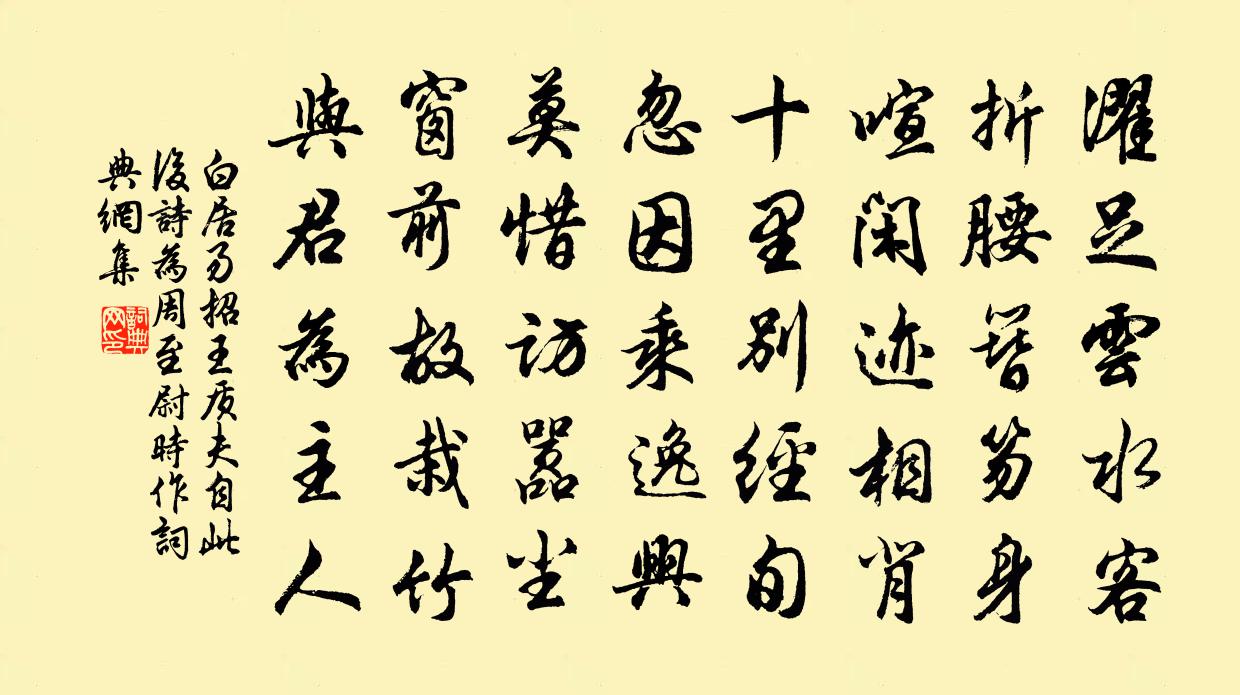 濯足雲水客
折腰簪笏身
喧閑迹相背
十里別經旬
忽因乘逸興
莫惜訪囂塵
窗前故栽竹
與君為主人
白居易招王质夫自此
後詩為周至尉時作詞
典網集
詞典网印